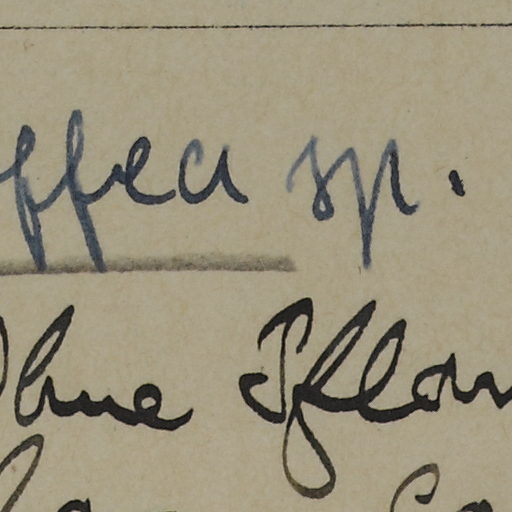 ffea sp.
Ohne Pflan